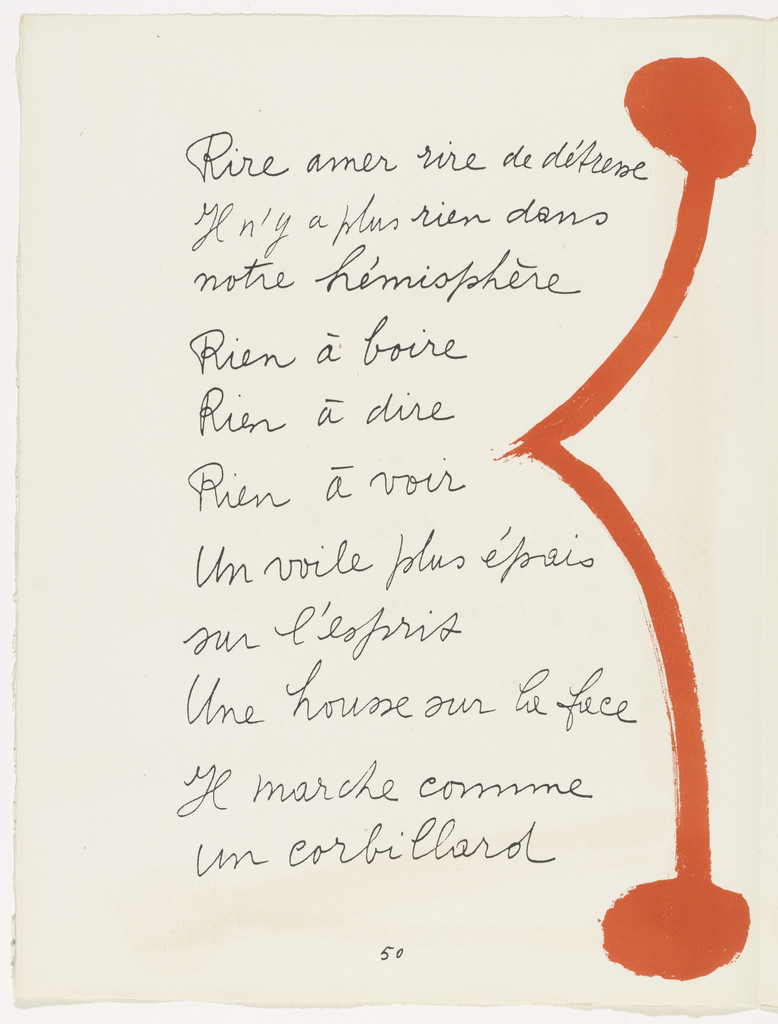 Rire amer rire de détresse
Il n'y a plus rien dans
notre hémisphère
Rien à boire
Rien à dire
Rien à voir
Un voile plus épais
sur l'esprit
Une housse sur la face
Il marche comme
un corbillard
50